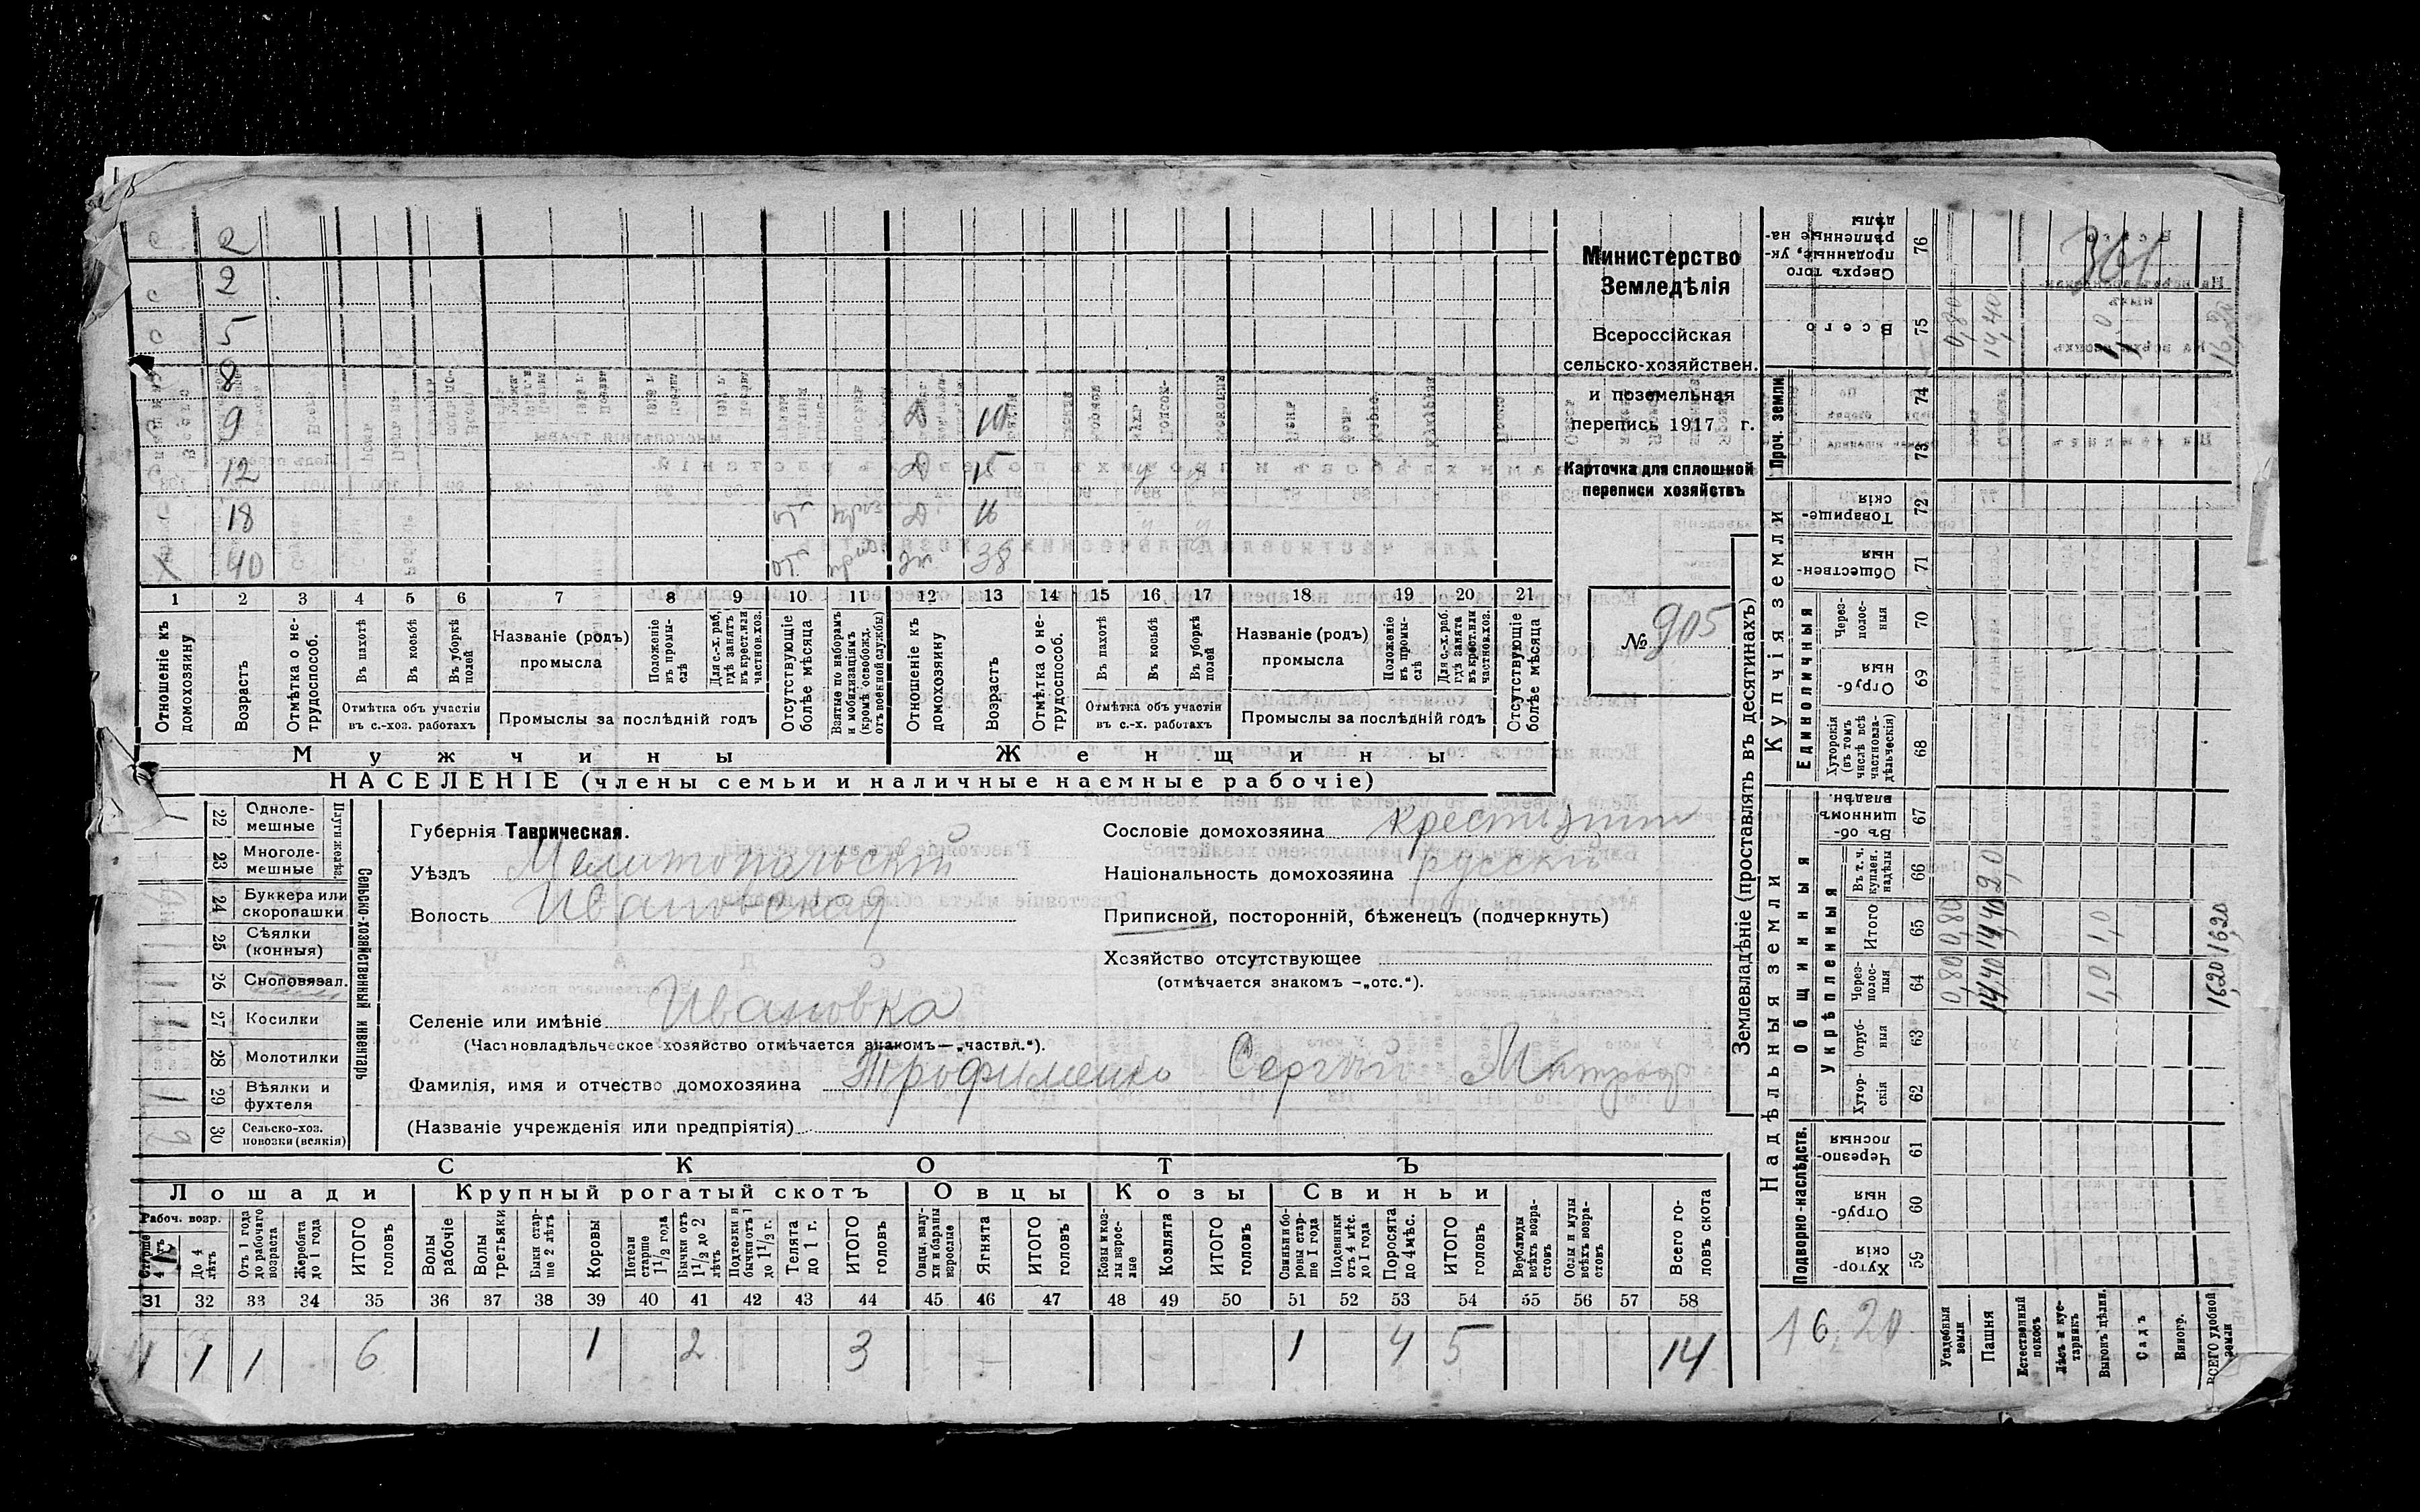 с 2
с 2
с 5
с 8
с 9 д 10
с 12 д 15
с 18 д 16
х 40 38
1 2 3 4 5 6 7 8 9 10 11 12 13 14 15 16 17 18 19 20 21
Отношеніе къ домохозяину
Возрастъ
Отмѣтка о не-трудоспособ.
Въ пахотѣ
Въ косьбѣ
Въ уборкѣ полей
Отмѣтка объ участіи въ с.-хоз. работахъ
Названіе (родъ) промысла
Положеніе въ промы-слѣ
Для с.-х. раб. гдѣ занятъ въ крест. или частнов. хоз.
Промыслы за послѣдній годъ
Отсутствующіе болѣе мѣсяца
Взятые по наборамъ и мобилизаціямъ (кромѣ освобожд. отъ военной службы)
Отношеніе къ домохозяину
Возрастъ
Отмѣтка о не-трудоспособ.
Въ пахотѣ
Въ косьбѣ
Въ уборкѣ полей
Отмѣтка объ участіи въ с.-х. работахъ
Названіе (родъ) промысла
Положеніе въ промы-слѣ
Для с.-х. раб. гдѣ занята въ крест. или частнов. хоз.
Промыслы за послѣдній годъ
Отсутствующіе болѣе мѣсяца
Мужчины Женщины
НАСЕЛЕНІЕ (члены семьи и наличные наемные рабочіе)
Министерство
Земледѣлія
Всероссійская
сельско-хозяйствен.
и поземельная
перепись 1917 г.
Карточка для сплошной
переписи хозяйствъ
№ 905
Сельско-хозяйственный инвентарь
Плуги желѣз.
22 Одноле-мешные
23 Многоле-мешные
24 Буккера или скоропашки
25 Сѣялки (конныя)
26 Сноповязал.
27 Косилки 1
28 Молотилки
29 Вѣялки и фухтеля 1
30 Сельско-хоз. повозки (всякія) 2
Губернія Таврическая.
Уѣздъ Мелитопольскій
Волость Ивановская
Сословіе домохозяина крестьянин
Національность домохозяина русскій
Приписной, посторонній, бѣженецъ (подчеркнуть)
Хозяйство отсутствующее
(отмѣчается знакомъ -„отс.“).
Селеніе или имѣніе Ивановка
(Частновладѣльческое хозяйство отмѣчается знакомъ—„частвл.“).
Фамилія, имя и отчество домохозяина Трофименко Сергѣй Митроф
(Названіе учрежденія или предпріятія)
СКОТЪ
Лошади Крупный рогатый скотъ Овцы Козы Свиньи
Рабоч. возр.
Старше 4 лѣтъ
До 4 лѣтъ
Отъ 1 года до рабочаго возраста
Жеребята до 1 года
ИТОГО головъ
Волы рабочіе
Волы третьяки
Быки стар-ше 2 лѣтъ
Коровы
Нетели старше 1 1/2 года
Бычки отъ 1 1/2 до 2 лѣтъ
Подтелки и бычки отъ 1 до 1 1/2 г.
Телята до 1 г.
ИТОГО головъ
Овцы, валу-хи и бараны взрослые
Ягнята
ИТОГО головъ
Козы и коз-лы взрос-лые
Козлята
ИТОГО головъ
Свиньи и бо-ровы стар-ше 1 года
Подсвинки отъ 4 мѣс. до 1 года
Поросята до 4 мѣс.
ИТОГО головъ
Верблюды всѣхъ возра-стовъ
Ослы и мулы всѣхъ возра-стовъ
Всего го-ловъ скота
31 32 33 34 35 36 37 38 39 40 41 42 43 44 45 46 47 48 49 50 51 52 53 54 55 56 57 58
4 1 1 6 1 2 3 — 1 4 5 14
Землевладѣніе (проставлять въ десятинахъ)
Надѣльныя земли
Купчія земли
Проч. земли
Подворно-наслѣдств.
Общинныя
Укрѣпленныя
Единоличныя
Сверхъ того проданные, ук-рѣпленные на-дѣлы 76
Всего 75 0,80 14,40 1,0 16,20
74
73
Товарище-скія 72
Обществен-ныя 71
Через-полос-ныя 70
Отруб-ныя 69
Хуторскія (въ томъ числѣ всѣ частновла-дѣльческія) 68
Въ об-щинномъ владѣн. 67
Въ т. ч. куплен. надѣлы 66 2,0
Итого 65 0,80 14,40 1,0 16,20
Через-полос-ныя 64 0,80 14,40 1,0 16,20
Отруб-ныя 63
Хутор-скія 62
Черезпо-лосныя 61
Отруб-ныя 60
Хутор-скія 59
361
16,20
Усадебныя земли
Пашня
Естественный покосъ
Лѣсъ и кус-тарникъ
Выгонъ дѣлин.
Садъ
Виногр.
ВСЕГО удобной земли